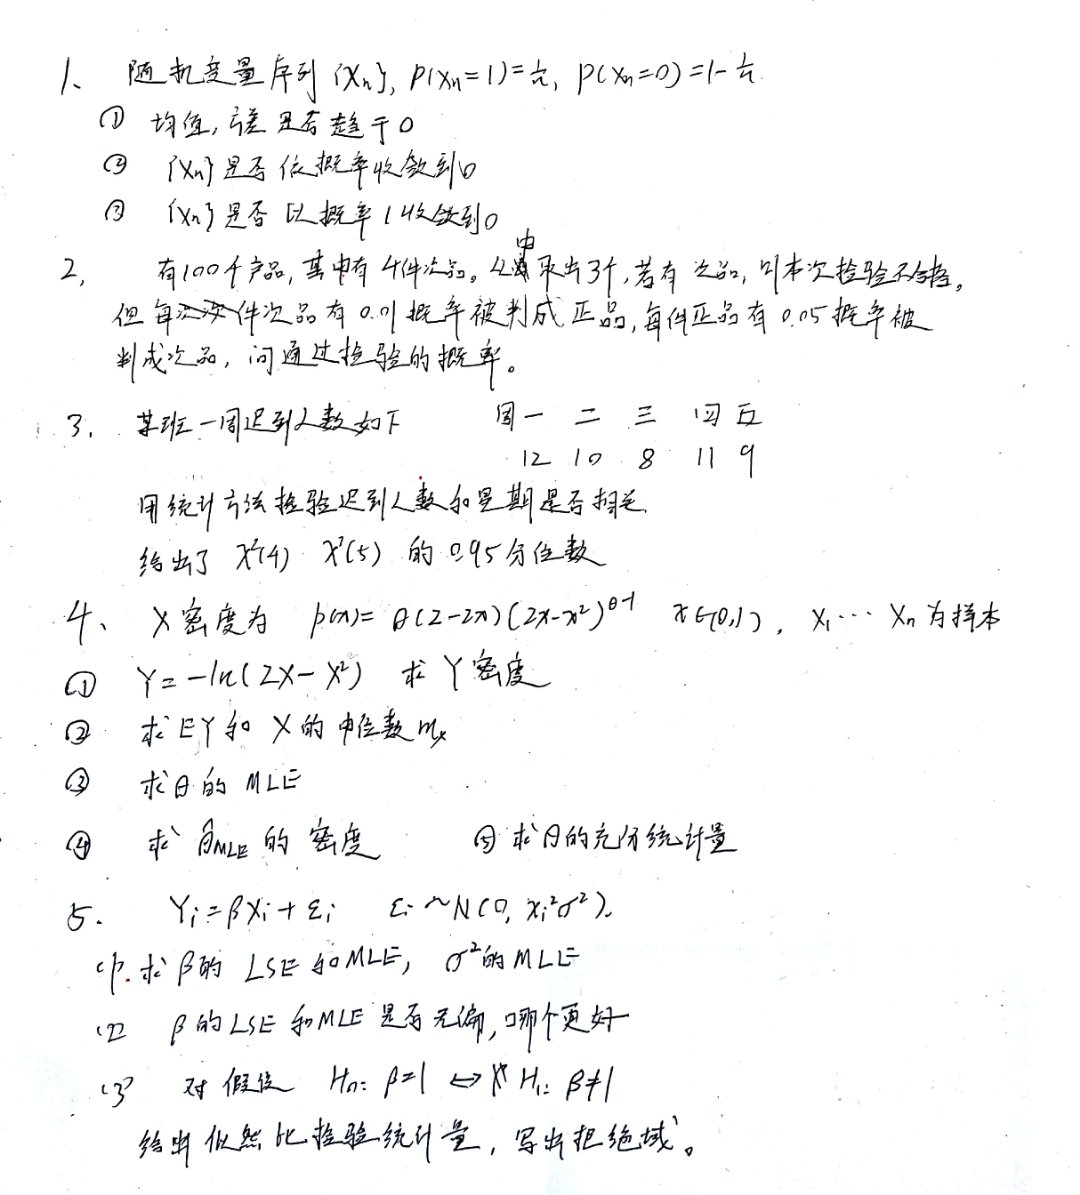 1、 随机变量序列 {Xn}, P(Xn=1)=1/n, P(Xn=0)=1-1/n.
① 均值,方差是否趋于0
② {Xn}是否依概率收敛到0
③ {Xn}是否以概率1收敛到0
2, 有100个产品,其中有4件次品。从中取出3个,若有次品,则本次检验不合格。
但每件次品有0.01概率被判成正品,每件正品有0.05概率被
判成次品,问通过检验的概率。
3, 某班一周迟到人数如下 周一 二 三 四 五
12 10 8 11 9
用统计方法检验迟到人数和星期是否相关
给出了 χ²(4) χ²(5) 的0.95分位数
4、 X密度为 p(x)=θ(2-2x)(2x-x²)^{θ-1} x∈(0,1), X₁…Xn为样本
① Y=-ln(2X-X²) 求Y密度
② 求EY和X的中位数mx
③ 求θ的MLE
④ 求θ̂MLE的密度 ⑤求θ的充分统计量
5. Yi=βXi+εi εi~N(0, xi²σ²).
(1). 求β的LSE和MLE, σ²的MLE
(2) β的LSE和MLE是否无偏,哪个更好
(3) 对假设 H₀: β=1 ↔ H₁: β≠1
给出似然比检验统计量,写出拒绝域。